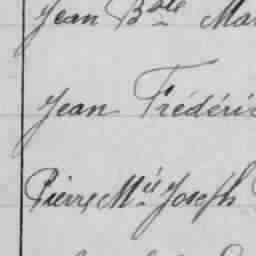 Jean Bte Ma
Jean Frédéri
Pierre Mie Joseph